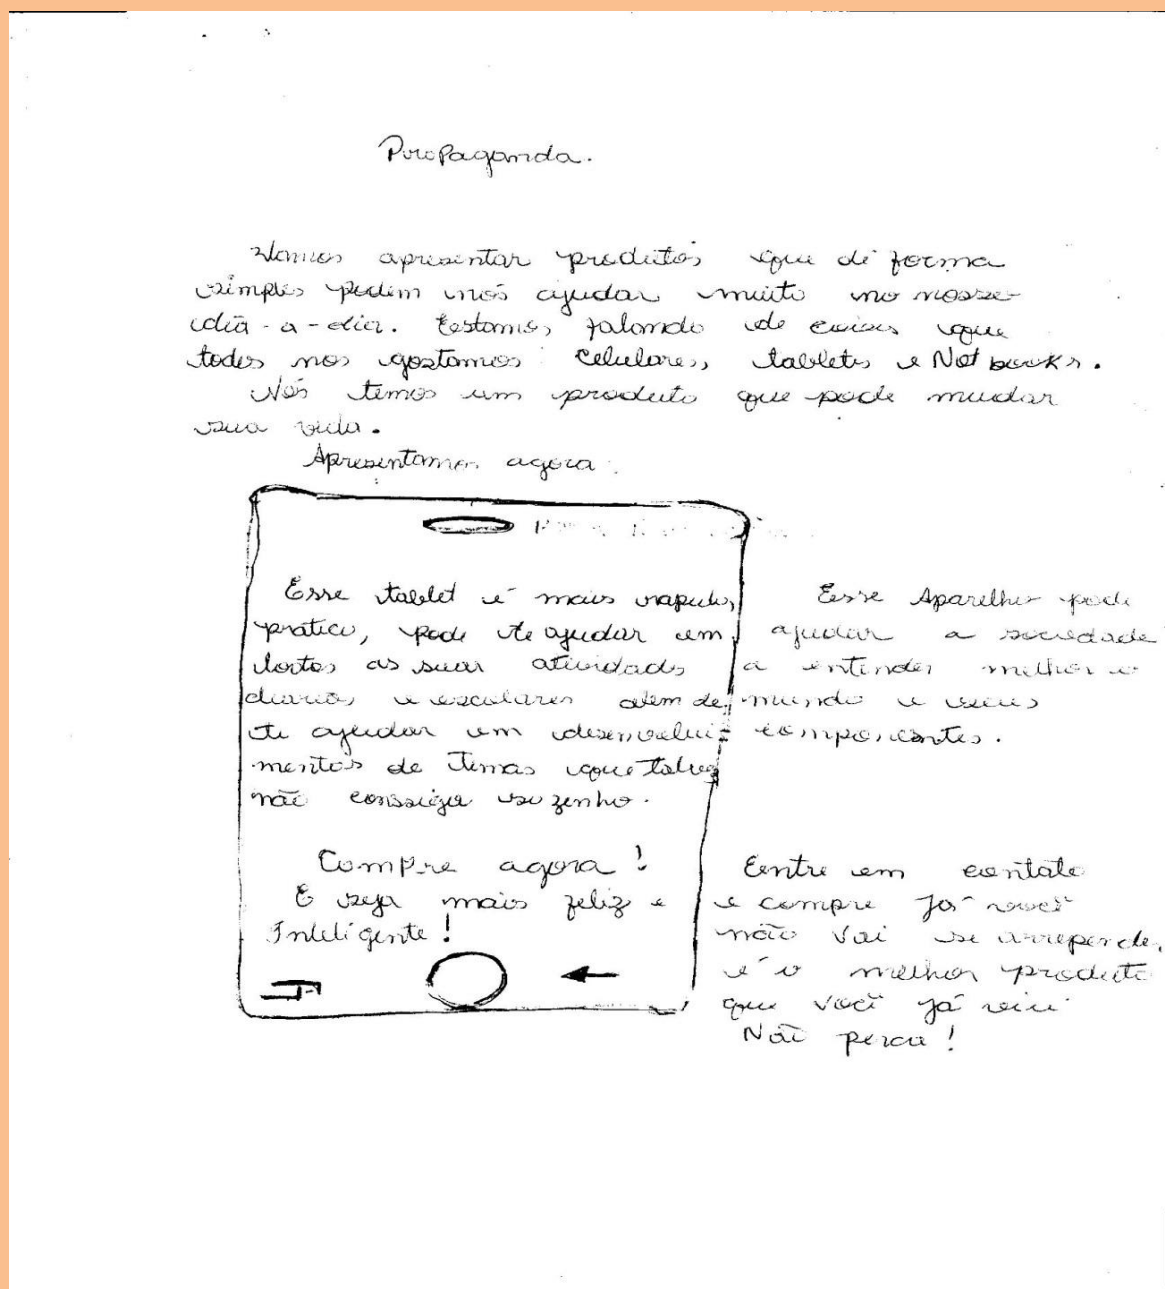 Propaganda.
Vamos apresentar produtos que de forma
simples podem nos ajudar muito no nosso
dia-a-dia. Estamos falando de coisas que
todos nos gostamos: celulares, tablets e Notbooks.
Nós temos um produto que pode mudar
sua vida.
Apresentamos agora:
Esse tablet é mais rapido,
pratico, pode te ajudar em
todas as suas atividades
diarias e escolares alem de
te ajudar em desenvolvi-
mentos de temas que talvez
não consiga sozinho.
Compre agora!
E seja mais feliz e
Inteligente!
Esse Aparelho pode
ajudar a sociedade
a entender melhor o
mundo e seus
componentes.
Entre em contato
e compre Já você
não vai se arrepender,
é o melhor produto
que você já viu
Não perca!